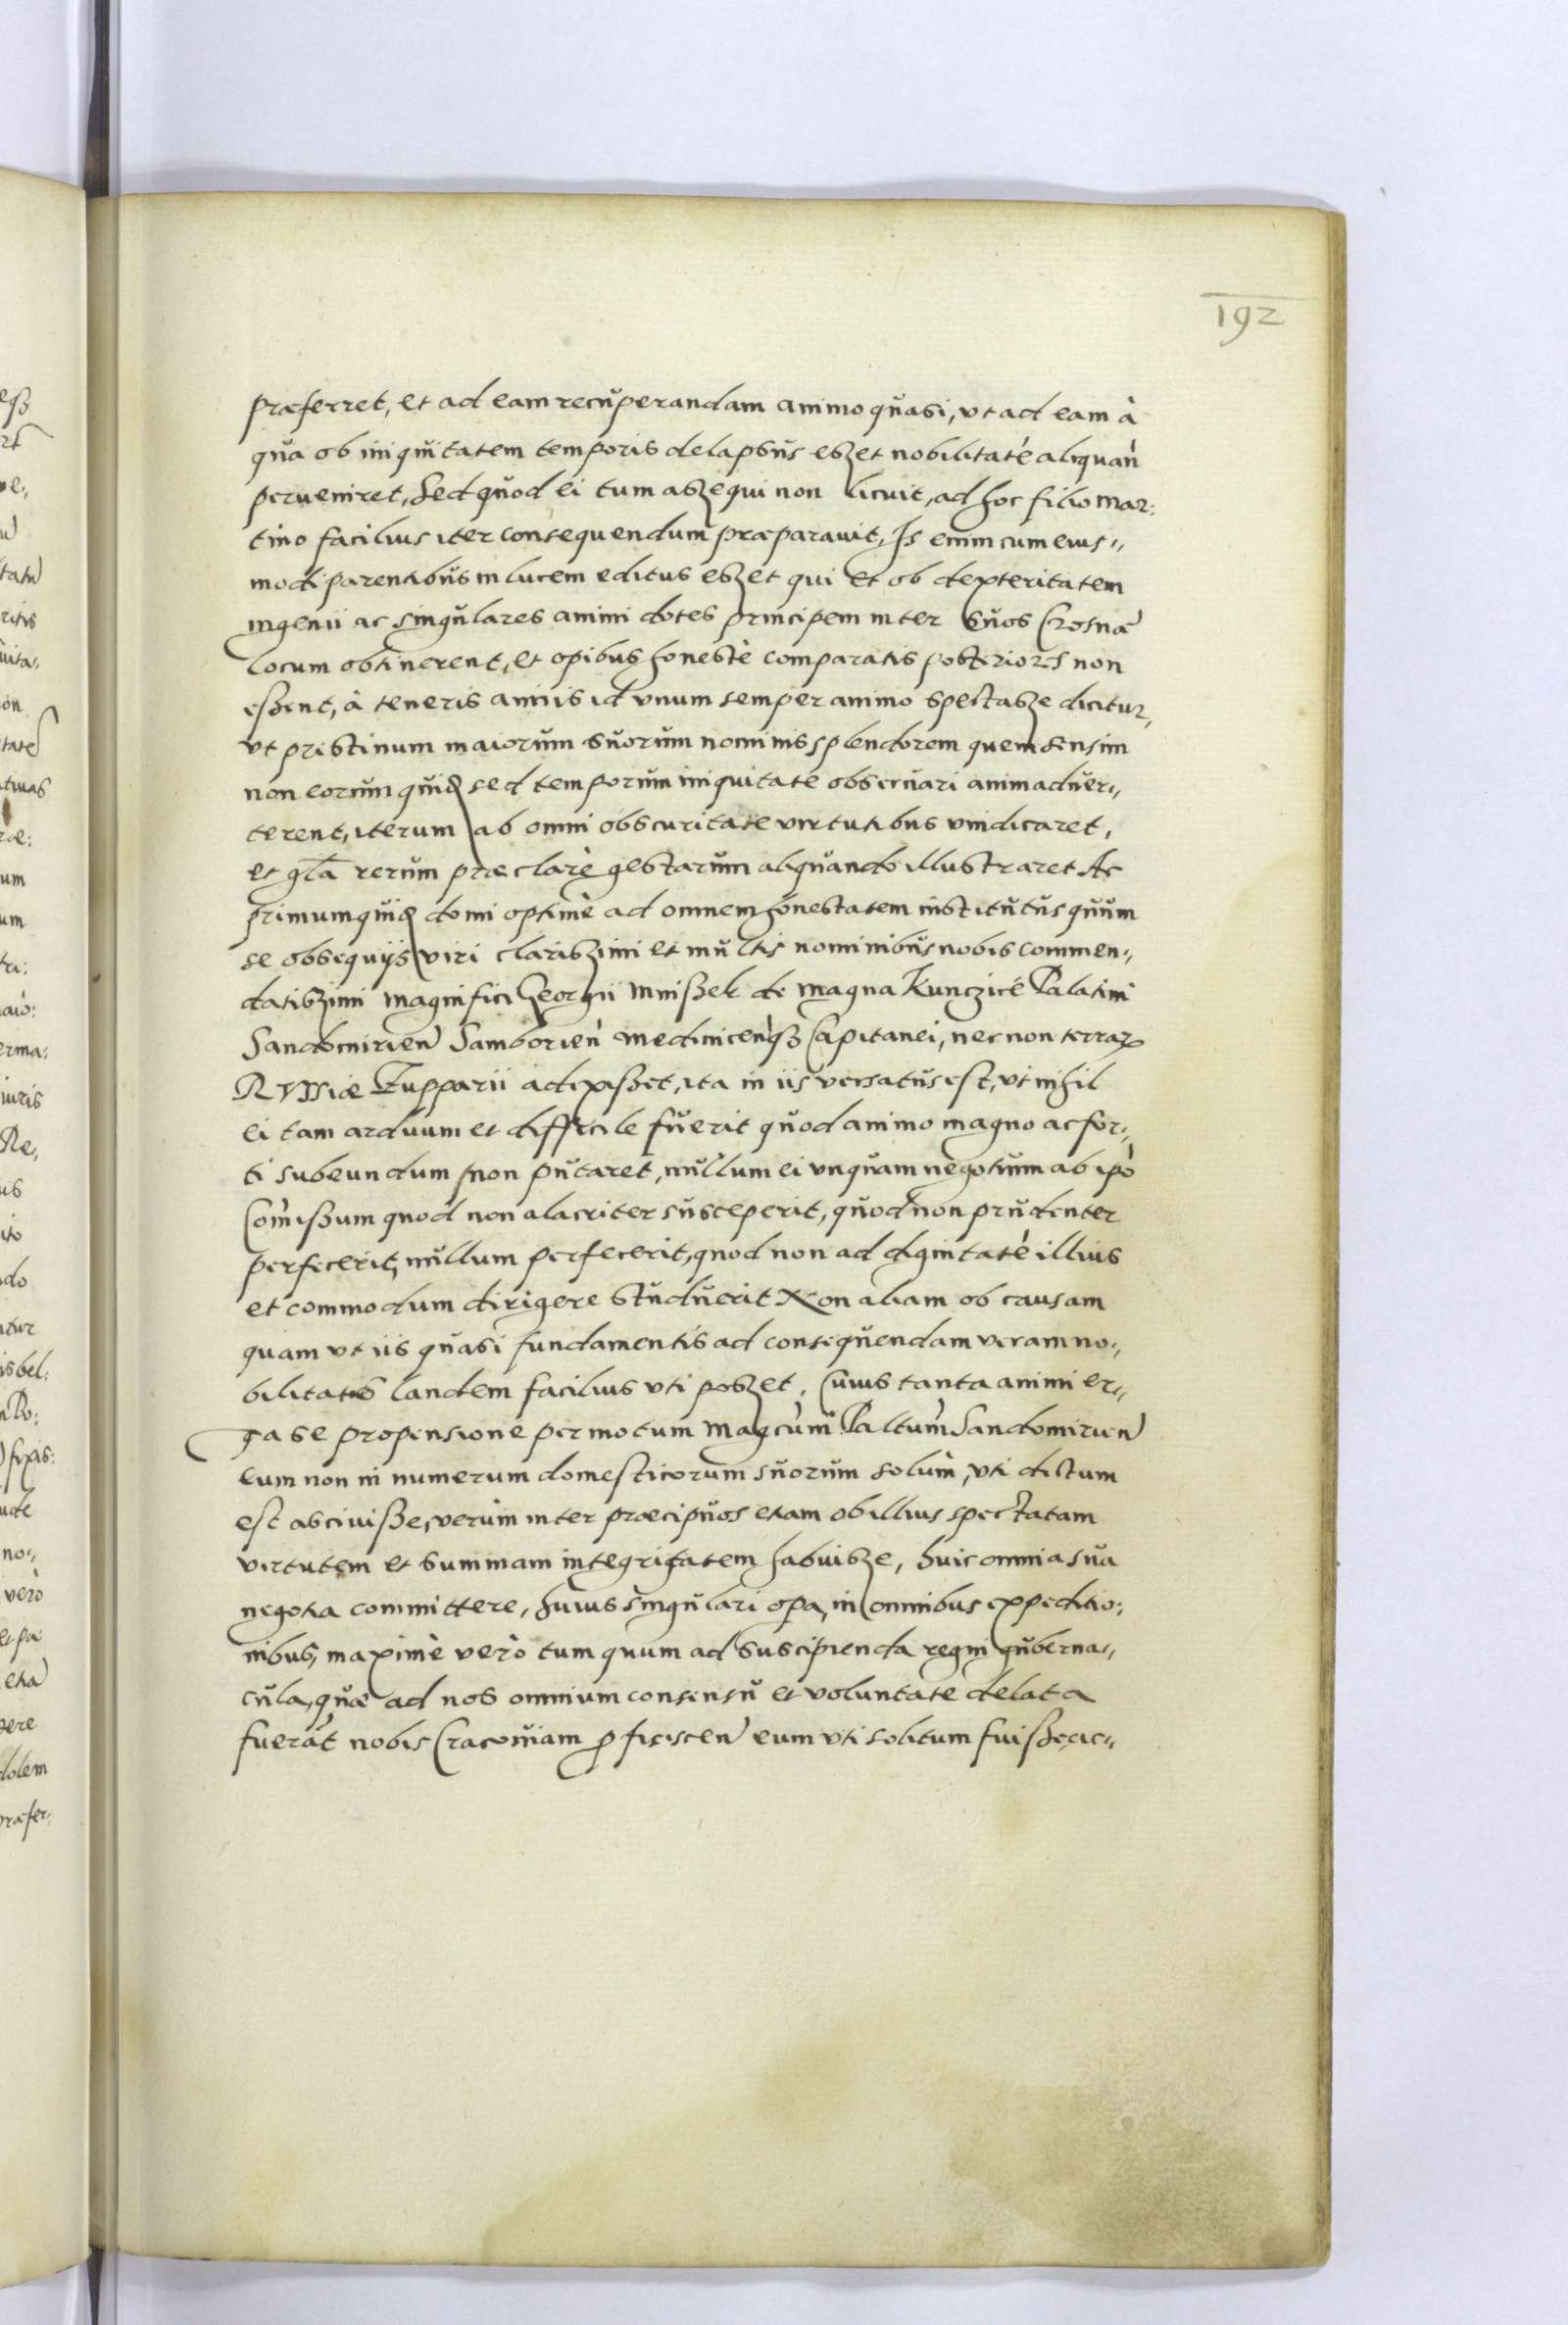 192
præferret, et ad eam recuperandam animo quasi, vt ad eam à
qua ob iniquitatem temporis delapsus eszet nobilitatē aliquan̄
perueniret, Sed quod ei tum aszequi non licuit, ad hoc filio Mar:
tino facilius iter consequendum præparauit, Is enim cum eius„
modi parentibus in lucem editus eszet qui et ob dexteritatem
ingenii ac singulares animi dotes principem inter suos Crosnæ
locum obtinerent, et opibus honestè comparatis posteriores non
eßent, à teneris annis id vnum semper animo spectasze dicitur,
vt pristinum maiorum suorum nominis splendorem quem sensim
non eorum quidē sed temporum iniquitate obscurari animaduer„
terent, iterum ab omni obscuritate virtutibus vindicaret,
et gl̄a rerum præclarè gestarum aliquando illustraret Ac
primum quidē domi optimè ad omnem honestatem institutus quum
se obsequijs viri clariszimi et multis nominibus nobis commen„
datiszimi Magnifici Georgii Mnißek de Magna Kunczicé Palatini
Sandomirien̄ Samborien̄ Medinicen̄qȝ Capitanei, nec non terraꝝ
Ryssiæ Zupparii adixißet, ita in iis versatus est, vt nihil
ei tam arduum et difficile fuerit quod animo magno ac for„
ti subeundum non putaret, nullum ei vnquam negotium ab ip̄o
Com̄ißum quod non alacriter susceperit, quod non prudenter
perfecerit, nullum perfecerit, quod non ad dignitatē illius
et commodum dirigere studuerit Non aliam ob causam
quam vt iis quasi fundamentis ad consequendam veram no„
bilitatis laudem facilius vti poszet. Cuius tanta animi er„
ga se propensione permotum Mag̅cum Pal̅tum Sandomirien̄
eum non in numerum domesticorum suorum solum, vti dictum
est asciuiße, verùm inter præcipuos etiam ob illius spectatam
virtutem et summam integritatem habuisze, huic omnia sua
negotia committere, huius singulari opa, in omnibus expeditio:
nibus, maximè verò tum quum ad suscipienda regni guberna„
cula, quæ ad nos omnium consensu et voluntate delata
fuerāt nobis Cracouiam ꝓficiscen̄ eum vti solitum fuißę, ac„